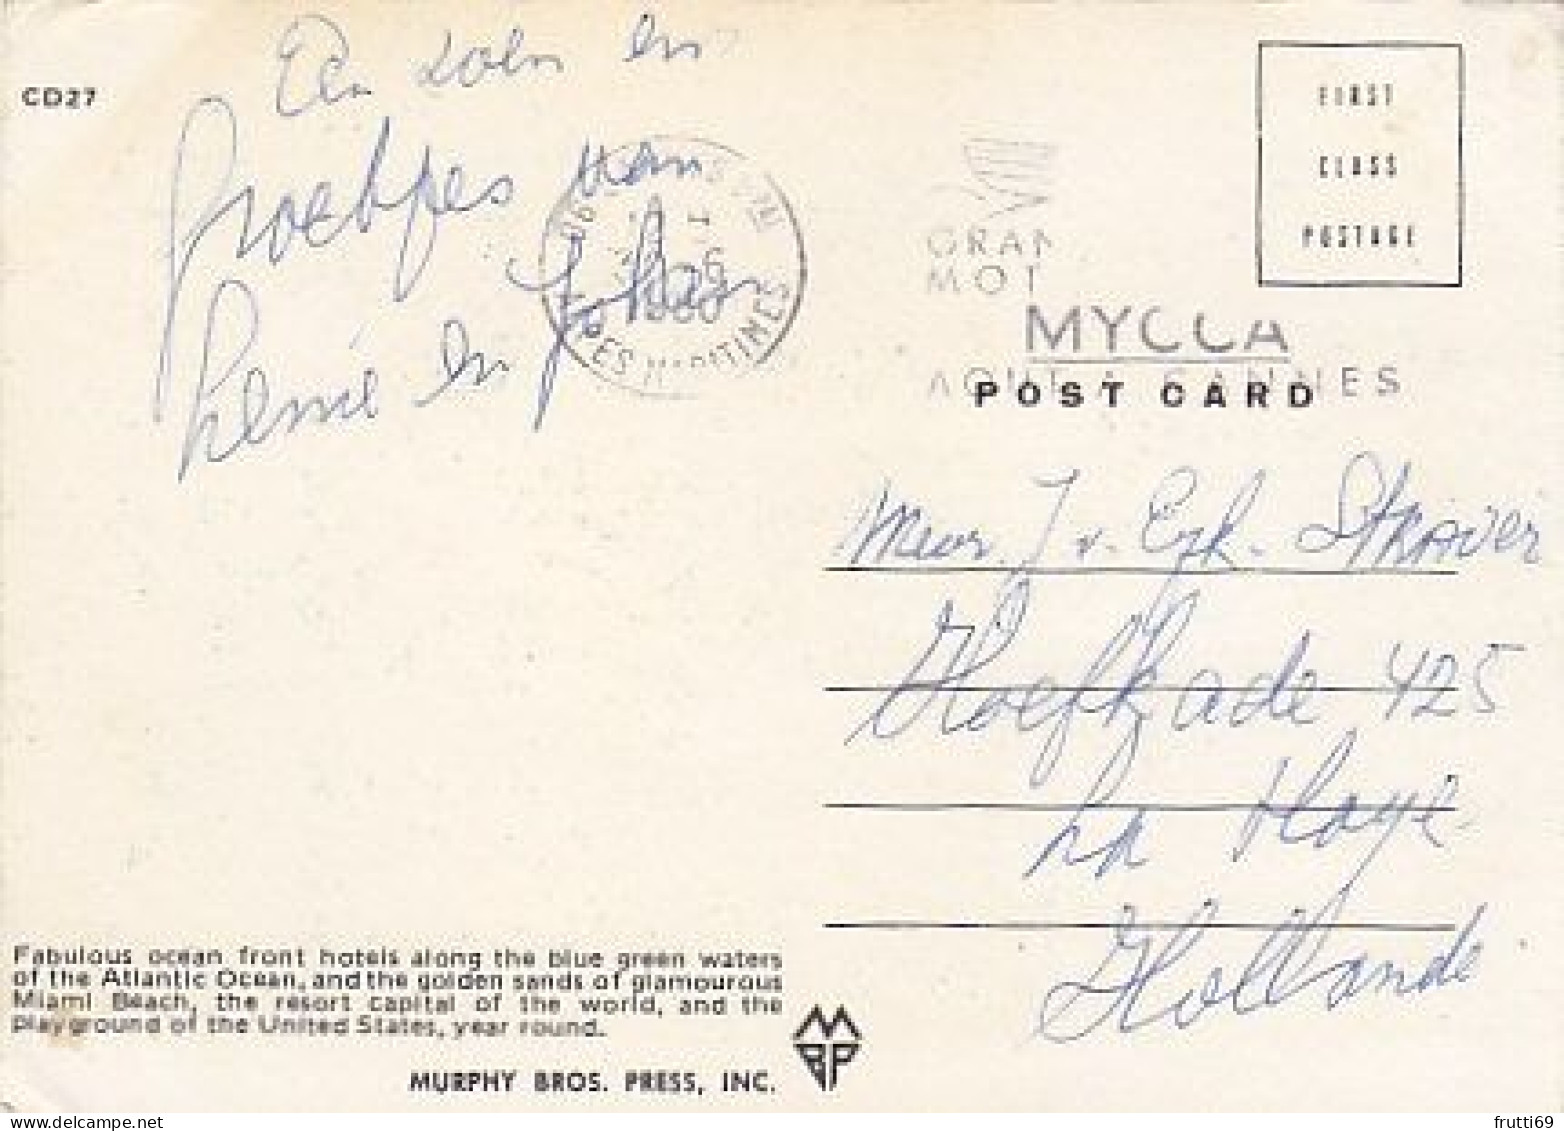 CD27
Een zoen en
groetjes van
Lenie en Johan
06
30 - 6
1980
ALPES MARITIMES
GRAN
MOT
MYCCA
CANNES
FIRST
CLASS
POSTAGE
POST CARD
Mevr. J v. Eyk. Straver
Hoefkade 425
La Haye
Hollande
Fabulous ocean front hotels along the blue green waters
of the Atlantic Ocean, and the golden sands of glamourous
Miami Beach, the resort capital of the world, and the
playground of the United States, year round.
MURPHY BROS. PRESS, INC.
MBP
delcampe.net
frutti69